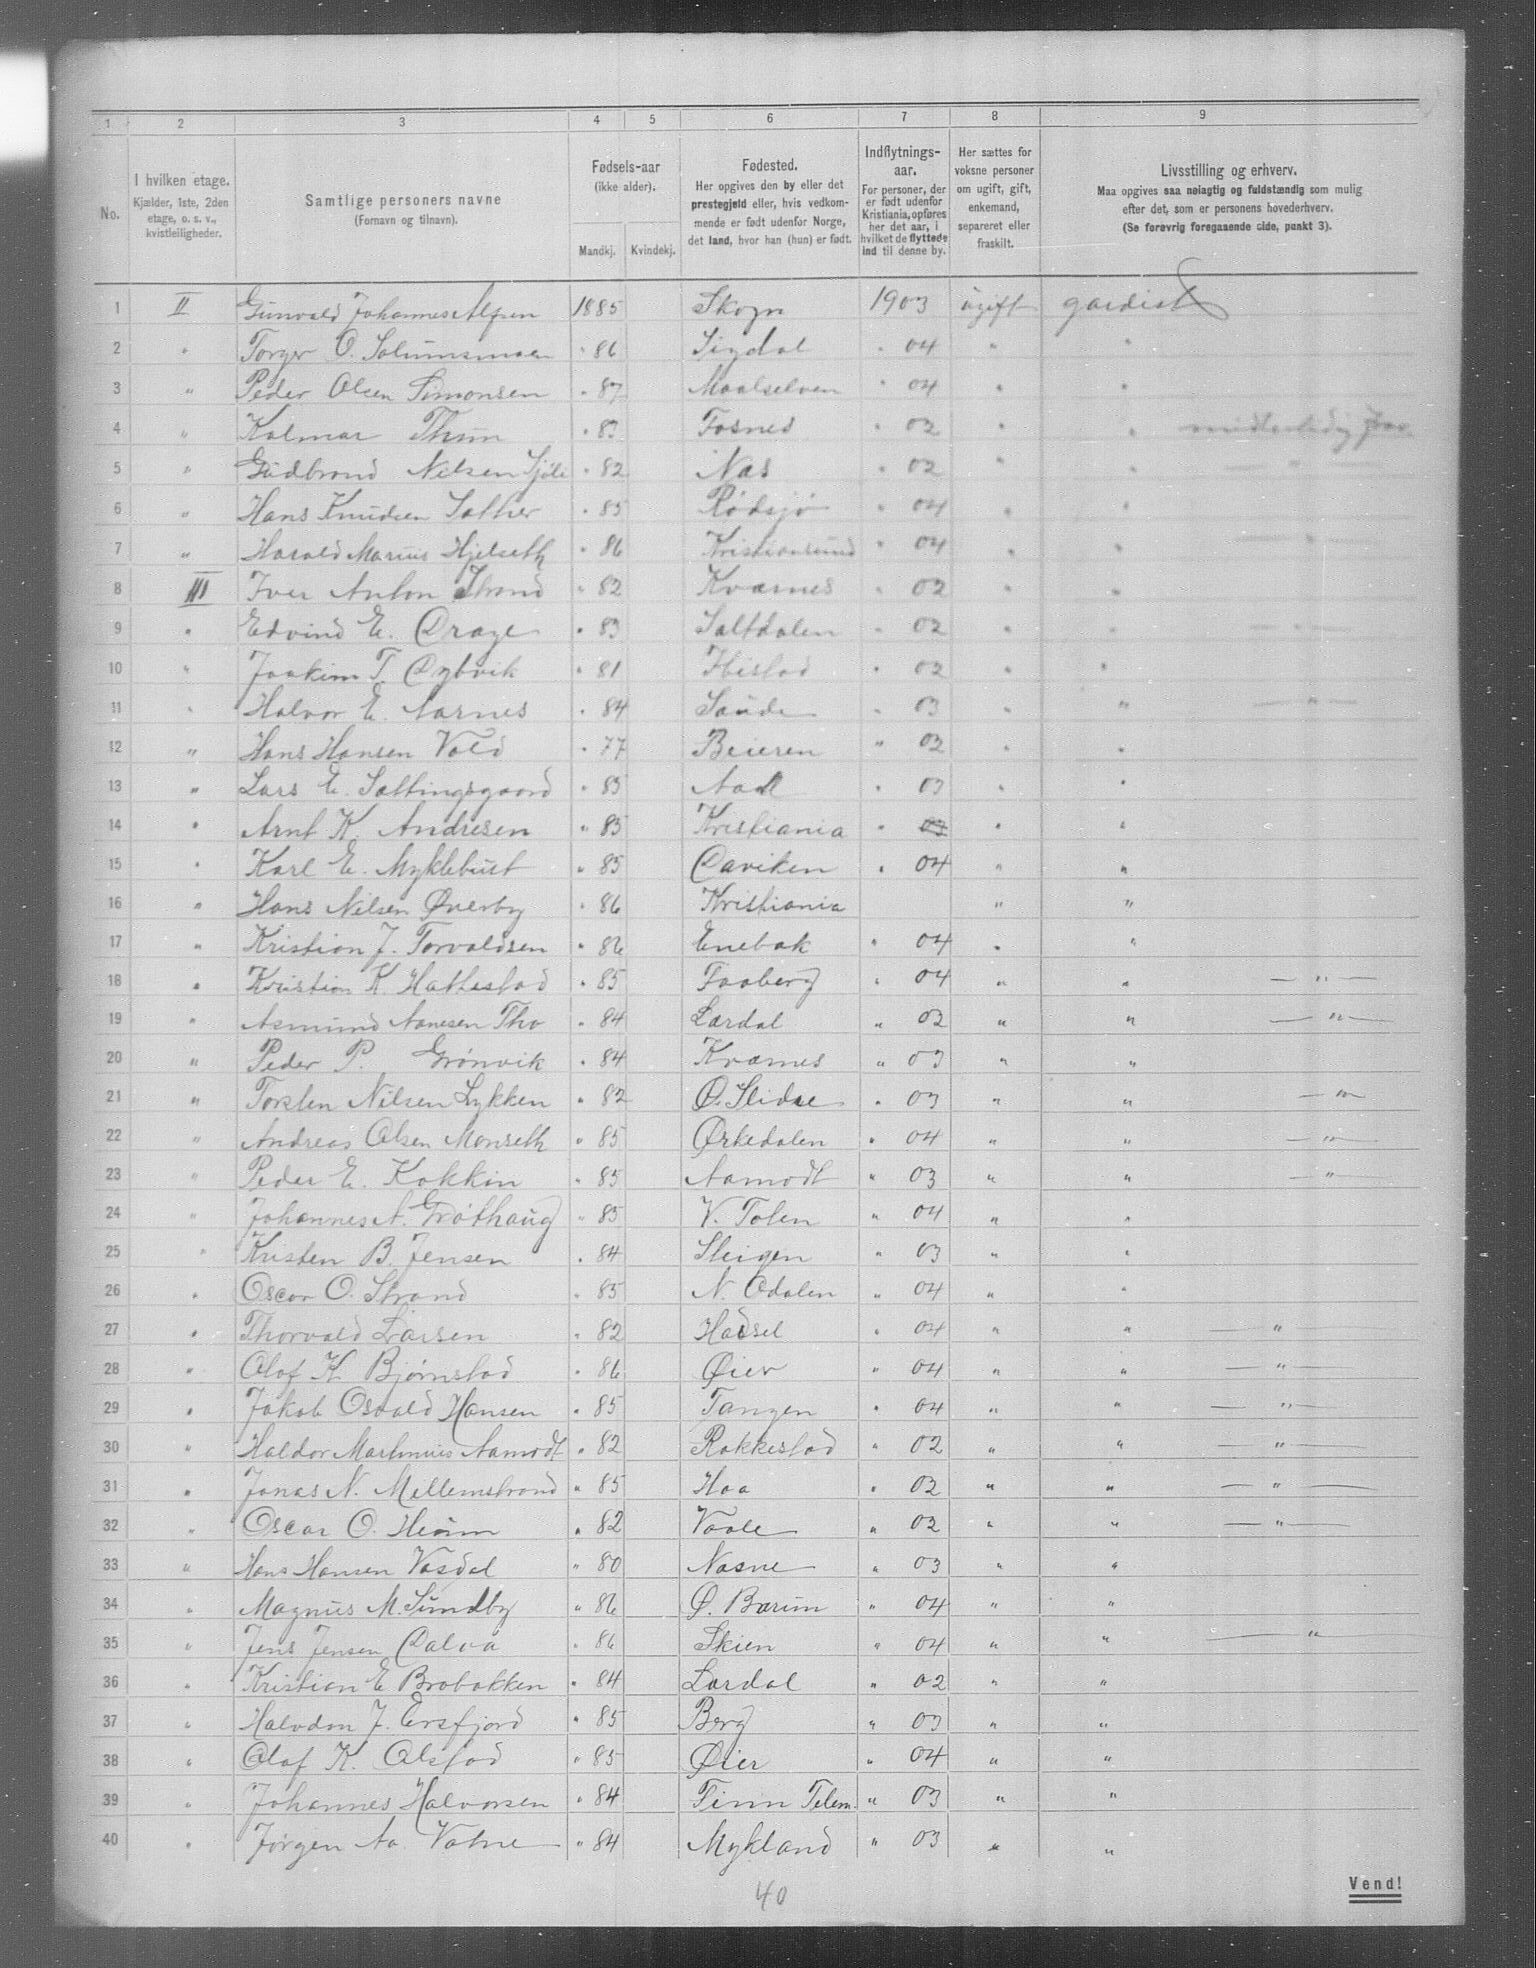 1 2 3 4 5 6 7 8 9
No.
I hvilken etage.
Kjælder, 1ste, 2den
etage, o. s. v.,
kvistleiligheder.
Samtlige personers navne
(Fornavn og tilnavn).
Fødsels-aar
(ikke alder).
Mandkj. Kvindekj.
Fødested.
Her opgives den by eller det
prestegjeld eller, hvis vedkom-
mende er født udenfor Norge,
det land, hvor han (hun) er født.
Indflytnings-
aar.
For personer, der
er født udenfor
Kristiania, opføres
her det aar, i
hvilket de flyttede
ind til denne by.
Her sættes for
voksne personer
om ugift, gift,
enkemand,
separeret eller
fraskilt.
Livsstilling og erhverv.
Maa opgives saa nøiagtig og fuldstændig som mulig
efter det, som er personens hovederhverv.
(Se forøvrig foregaaende side, punkt 3).
1 II Gunvald Johannes Alfsen 1885 Skogn 1903 ugift gardist
2 " Torger O. Solumsmoen " 86 Sigdal " 04 " "
3 " Peder Olsen Simonsen " 87 Maalselven " 04 " "
4 " Kolmar Thun " 83 Fosnes " 02 " " midlertidig
5 " Gudbrand Nilsen " 82 Næs " 02 " " "
6 " Hans Knudsen Sæther " 85 Rødsjø " 04 " "
7 " Harald Marius Hjelseth " 86 Kristiansund " 04 " " "
8 III Iver Anton Strand " 82 Kværnes " 02 " "
9 " Edvind E. Drage " 83 Saltdalen " 02 " " "
10 " Joakim T. Dybvik " 81 Ibestad " 02 " "
11 " Halvor E. Aarnes " 84 Saude " 03 " " "
12 " Hans Hansen Vold " 77 Beieren " 02 " "
13 " Lars E. Sættingsgaard " 85 Aadl " 03 " "
14 " Arnt K. Andresen " 85 Kristiania " 03 " "
15 " Karl E. Myklebust " 85 Daviken " 04 " "
16 " Hans Nilsen Øverby " 86 Kristiania " "
17 " Kristian J. Torvaldsen " 86 Enebak " 04 " "
18 " Kristian K. Hattestad " 85 Faaberg " 04 " " "
19 " Asmund Aanesen Tho " 84 Lærdal " 02 " " "
20 " Peder P. Grønvik " 84 Kværnes " 03 " "
21 " Torsten Nilsen Lykken " 82 Ø. Slidre " 03 " " "
22 " Andreas Olsen Monseth " 85 Ørkedalen " 04 " " "
23 " Peder E. Kokkin " 85 Aamodt " 03 " " "
24 " Johannes A. Grøthaug " 85 V. Toten " 04 " "
25 " Kristen B. Jensen " 84 Steigen " 03 " "
26 " Oscar O. Strand " 85 N. Odalen " 04 " "
27 " Thorvald Larsen " 82 Hadsel " 04 " " "
28 " Olaf K Bjørnstad " 86 Øier " 04 " " "
29 " Jakob Osvald Hansen " 85 Tangen " 04 " " "
30 " Haldor Martinius Aamodt " 82 Rakkestad " 02 " " "
31 " Jonas N. Mellemstrand " 85 Hoa " 02 " " "
32 " Oscar O. Heum " 82 Vaale " 02 " " "
33 " Hans Hansen Vasdal " 80 Nasne " 03 " "
34 " Magnus M. Sundby " 86 Ø. Bærum " 04 " "
35 " Jens Jensen Dalva " 86 Skien " 04 " " "
36 " Kristian E Brobakken " 84 Lærdal " 02 " "
37 " Halvdan J. Ersfjord " 85 Berg " 03 " "
38 " Olaf K. Olstad " 85 Øier " 04 " "
39 " Johannes Halvorsen " 84 Tinn Telem. " 03 " "
40 " Jørgen Aa. Vatne " 84 Mykland " 03 " "
40
Vend!